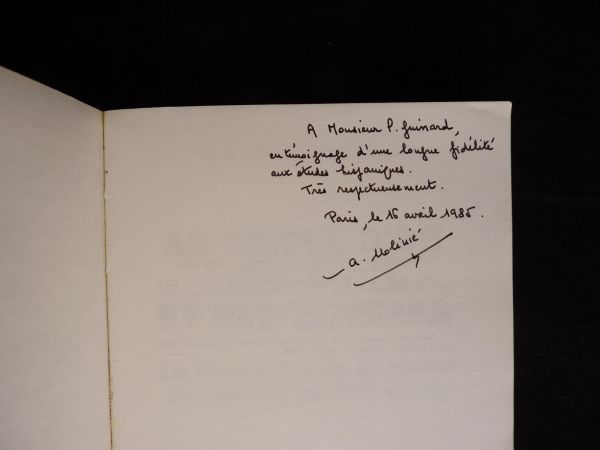 A Monsieur P. Guinard,
en témoignage d'une longue fidélité
aux études hispaniques.
Très respectueusement.
Paris, le 16 avril 1985.
A. Molinié